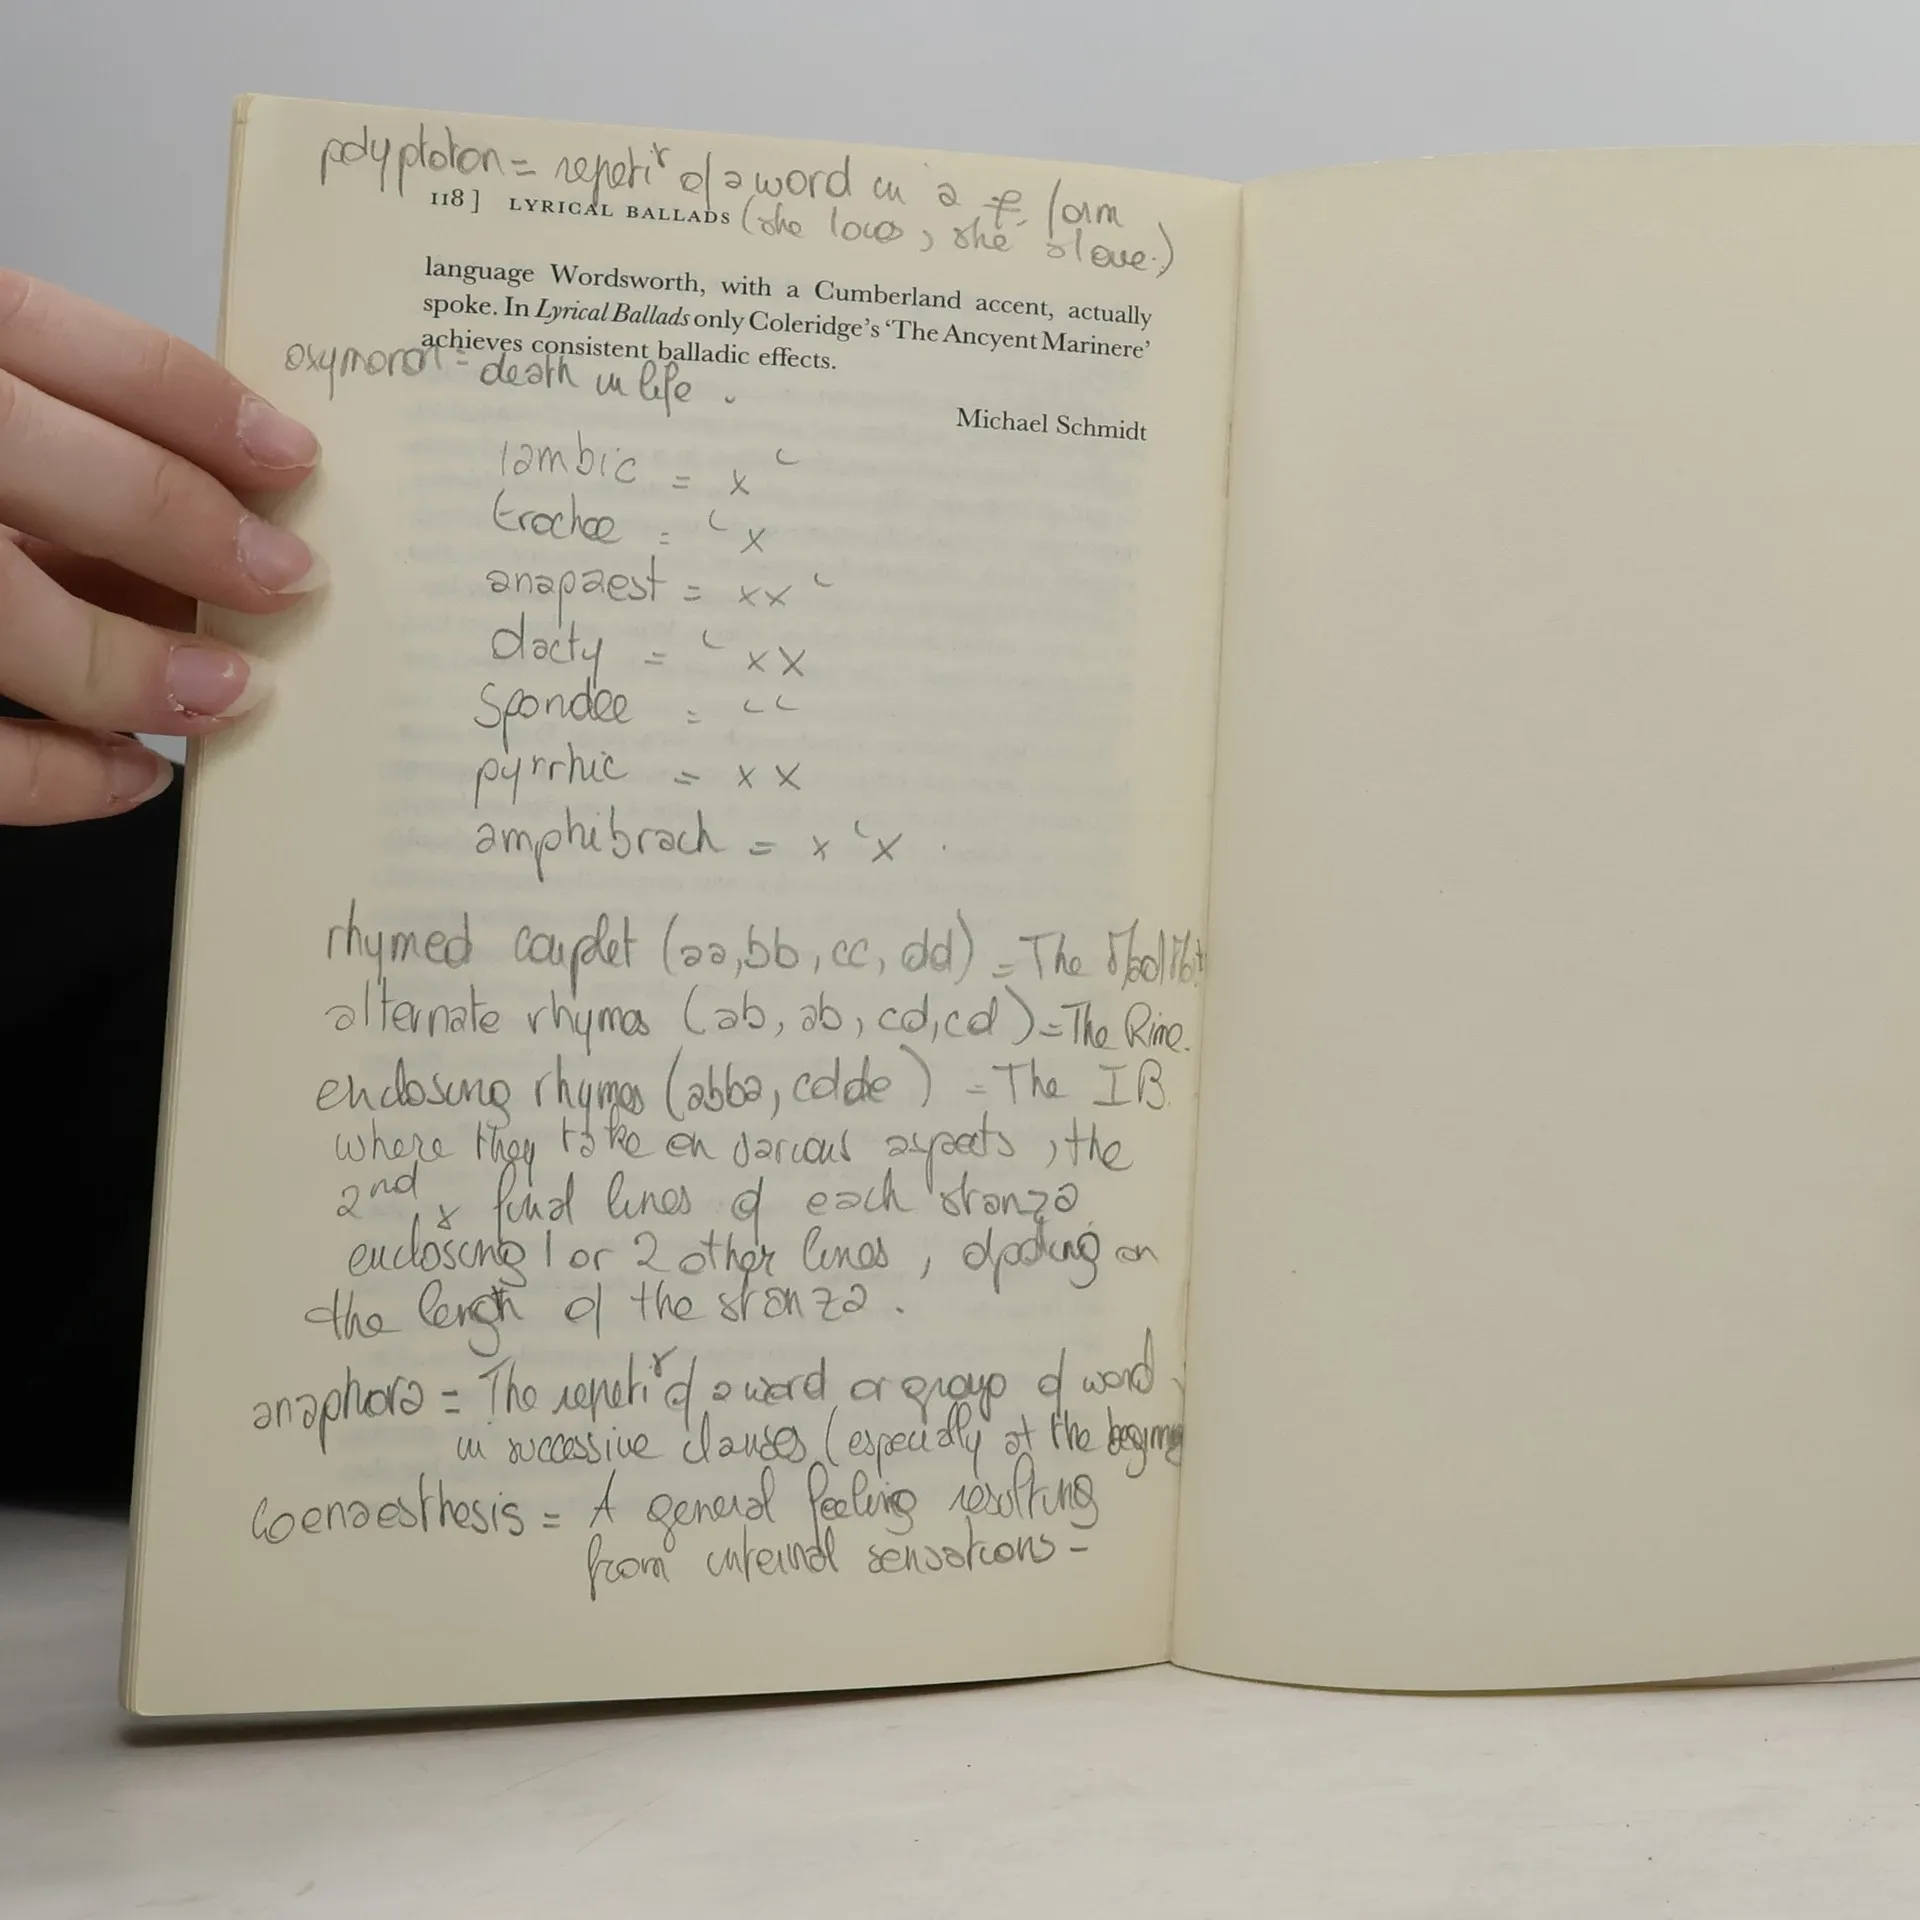 polyptoton = repeti° of a word in a ≠ form
118] LYRICAL BALLADS (she loves, she's love.)
language Wordsworth, with a Cumberland accent, actually
spoke. In Lyrical Ballads only Coleridge's 'The Ancyent Marinere'
achieves consistent balladic effects.
oxymoron = death in life.
Michael Schmidt
iambic = x ‿
trochee = ‿ x
anapaest = xx ‿
dacty = ‿ xx
Spondee = ‿ ‿
pyrrhic = x x
amphibrach = x ‿ x
rhymed couplet (aa, bb, cc, dd) = The
alternate rhymes (ab, ab, cd, cd) = The Rime.
enclosing rhymes (abba, cdde) = The IB.
where they take on various aspects, the
2nd & final lines of each stanza
enclosing 1 or 2 other lines, on
the lengh of the stanza.
anaphora = The repeti° of a word or group of word
in successive clauses (especially at the
Coenaesthesis = A general feeling resulting
from internal sensations -